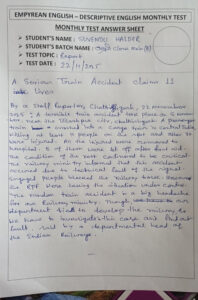 EMPYREAN ENGLISH – DESCRIPTIVE ENGLISH MONTHLY TEST
MONTHLY TEST ANSWER SHEET
➤ STUDENT'S NAME : SUVENDU HALDER
➤ STUDENT'S BATCH NAME :
➤ TEST TOPIC : Report
➤ TEST DATE : 22/11/2025
A Serious Train Accident claims 11
Lives
By a Staff Reporter, 22 november
2025 : A terrible train accident took place on
near the
train collided with a cargo train
killing at least 11 people on the spot and
were injured. As the injured were removed to
hospital. 5 of them were let off after first aid
the condition of the rest continued to be critical.
The Railway ministry informed that this accident
occurred due to technical fault of the signal
enraged people blocked the railway track. However
the RPF were taking the situation under control.
The random train accident is a big headache
for our Railway ministry. Though
department tried to develop the railway
to investigate the case and find out
fault, said by a departmental head of
the Indian Railways.